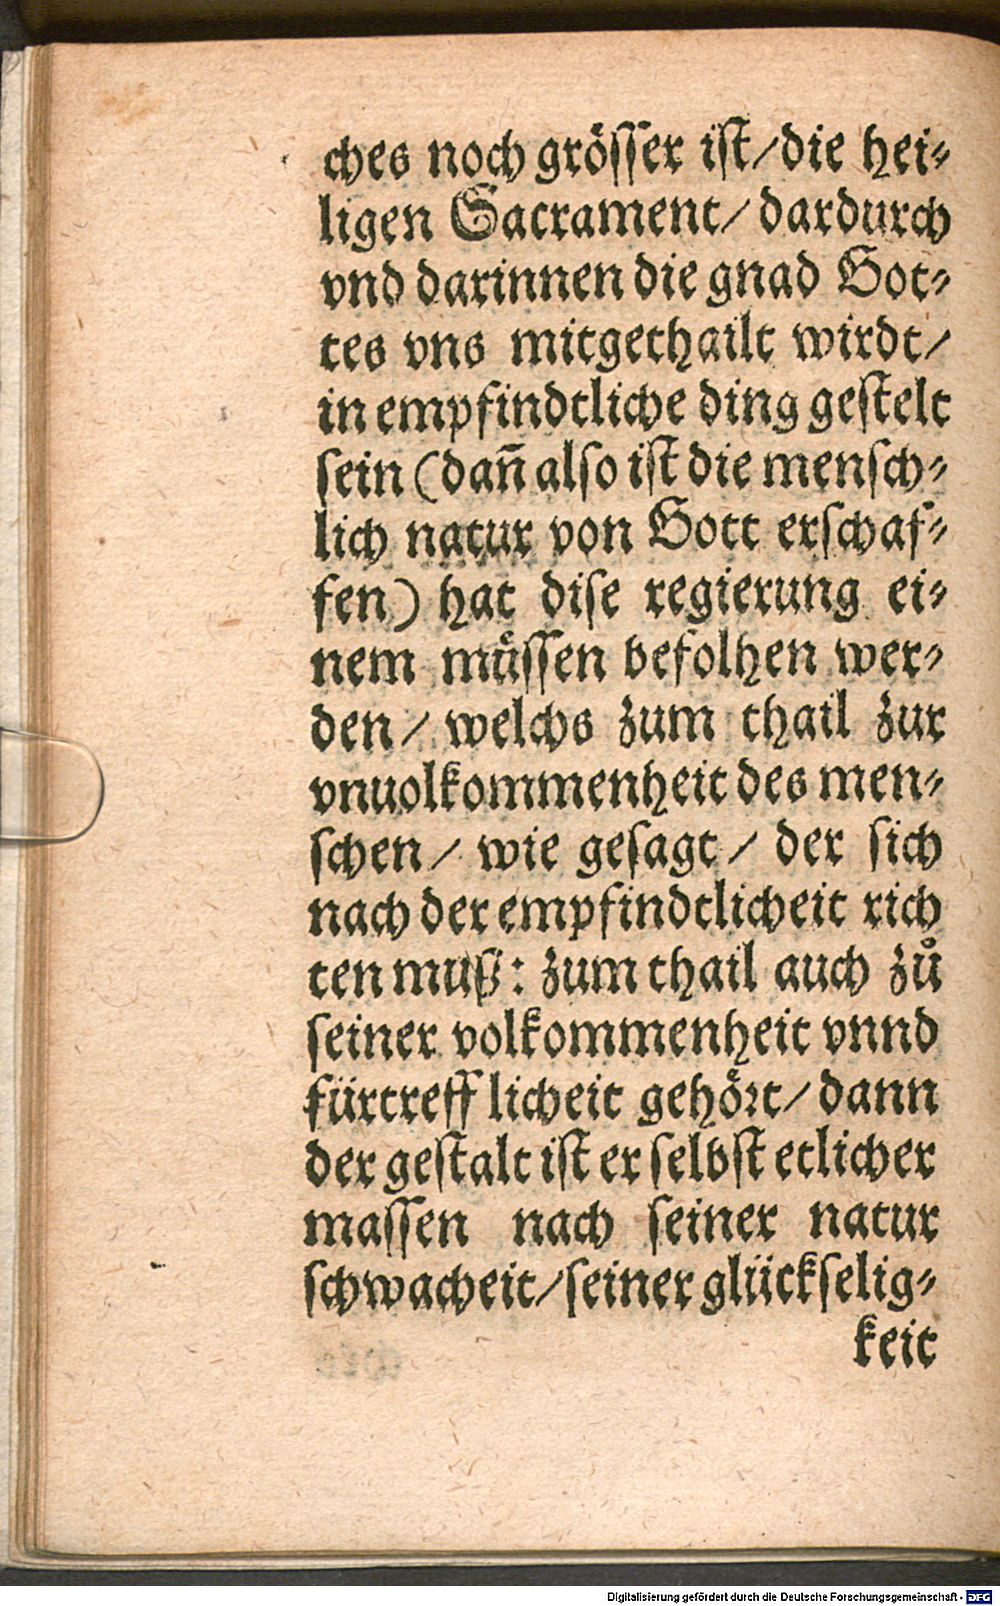 ches noch grösser ist/die hei⸗
ligen Sacrament/ dardurch
vnd darinnen die gnad Got⸗
tes vns mitgethailt wirdt/
in empfindtliche ding gestelt
sein (dañ also ist die mensch⸗
lich natur von Gott erschaf⸗
fen) hat dise regierung ei⸗
nem müssen befolhen wer⸗
den/ welchs zum thail zur
vnuolkommenheit des men⸗
schen/ wie gesagt/ der sich
nach der empfindtlicheit rich
ten muß: zum thail auch zů
seiner volkommenheit vnnd
fürtrefflicheit gehört/ dann
der gestalt ist er selbst etlicher
massen nach seiner natur
schwacheit/seiner glückselig⸗
keit
Digitalisierung gefördert durch die Deutsche Forschungsgemeinschaft - DFG